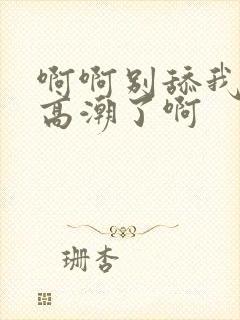 啊啊别舔我
高潮了啊
珊杏